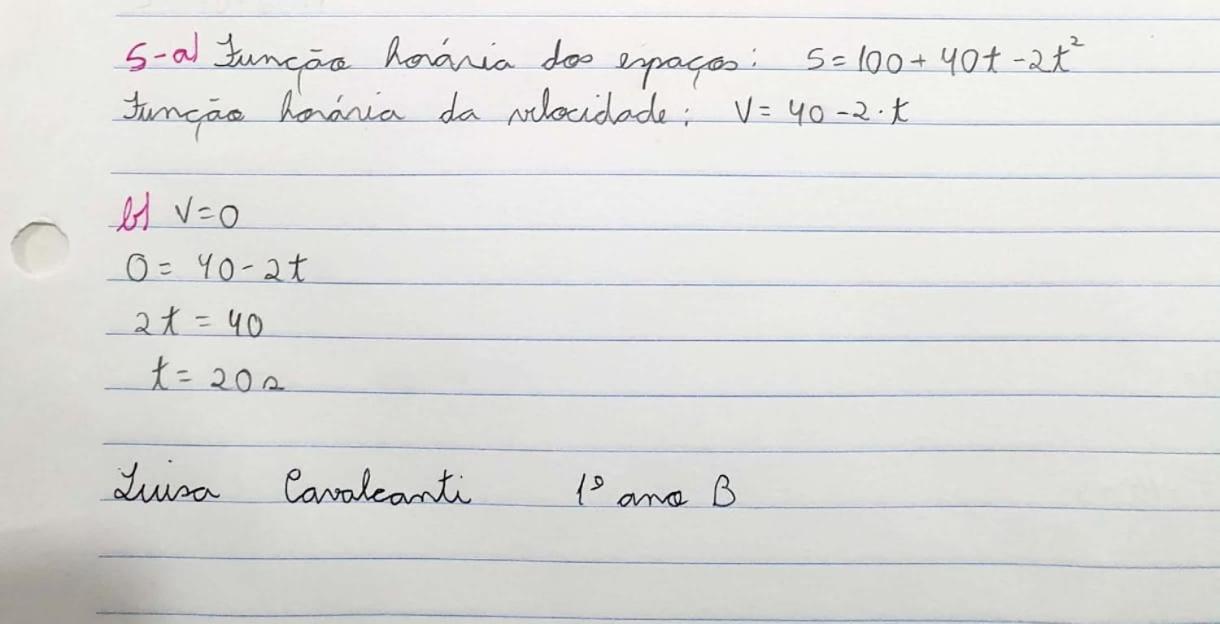 5-a) Função horária dos espaços: S = 100 + 40t - 2t²
Função horária da velocidade: V = 40 - 2 · t
b) V = 0
0 = 40 - 2t
2t = 40
t = 20s
Luisa Cavalcanti 1º ano B